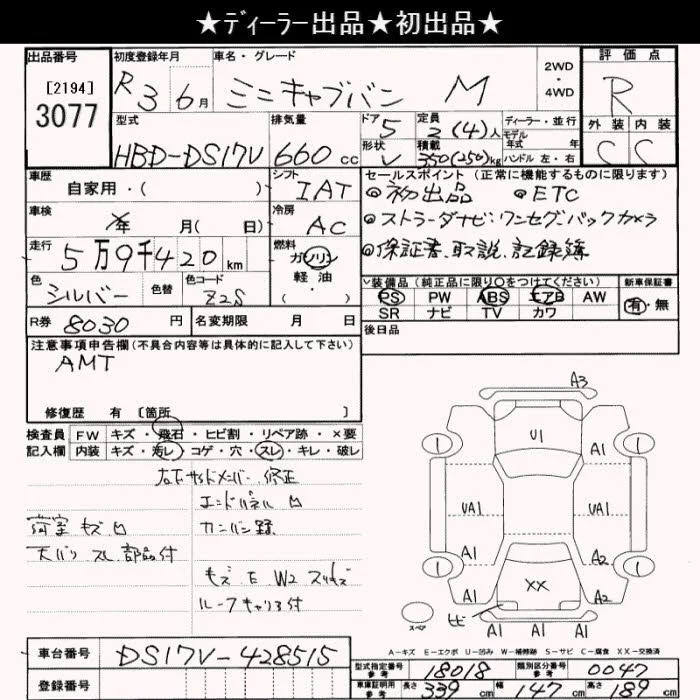 ★ﾃﾞｨｰﾗｰ出品★初出品★
出品番号 初度登録年月 車名・グレード 2WD・4WD 評価点
[2194]
3077
R3 6月 ミニキャブバン M
R
型式 排気量 ドア 5 定員 2(4)人 ディーラー・並行
モデル年式 年
外装 内装
HBD-DS17V 660cc 形状 V 積載 350(250)kg ハンドル 左・右
C C
車歴 自家用・( )
シフト IAT
セールスポイント (正常に機能するものに限ります)
初出品 ETC
ストラーダナビ.ワンセグ.バックカメラ
保証書.取説.記録簿
車検 年 月( 日)
冷房 AC
走行 5万9千420km
燃料 ガソリン
軽油
・( )
色 シルバー 色替 色コード Z2S
装備品 (純正品に限り○をつけてください) 新車保証書
PS PW ABS エアB AW 有・無
SR ナビ TV カワ
R券 8030円 名変期限 月 日
後日品
注意事項申告欄(不具合内容等は具体的に記入して下さい)
AMT
修復歴 有 [箇所 ]
検査員記入欄 FW キズ・飛石・ヒビ割・リペア跡・×要
内装 キズ・汚れ・コゲ・穴・スレ・キレ・破レ
左右サイドメンバー 修正
エンドパネル
荷室 キズ
天バリ スレ 部品付
キズ E W2
ルーフキャリア付
A3
U1
A1
1
1
UA1
UA1
A1
A2
1
1
XX
A1
A2
スペア
ヒビ
A1 A1 A1
A-キズ E-エクボ U-凹み W-補修跡 S-サビ C-腐食 XX-交換済
車台番号 DS17V-428515
登録番号
型式指定番号 参考 18018 類別区分番号 参考 0047
車庫証明用 参考 長さ 339cm 幅 147cm 高さ 189cm